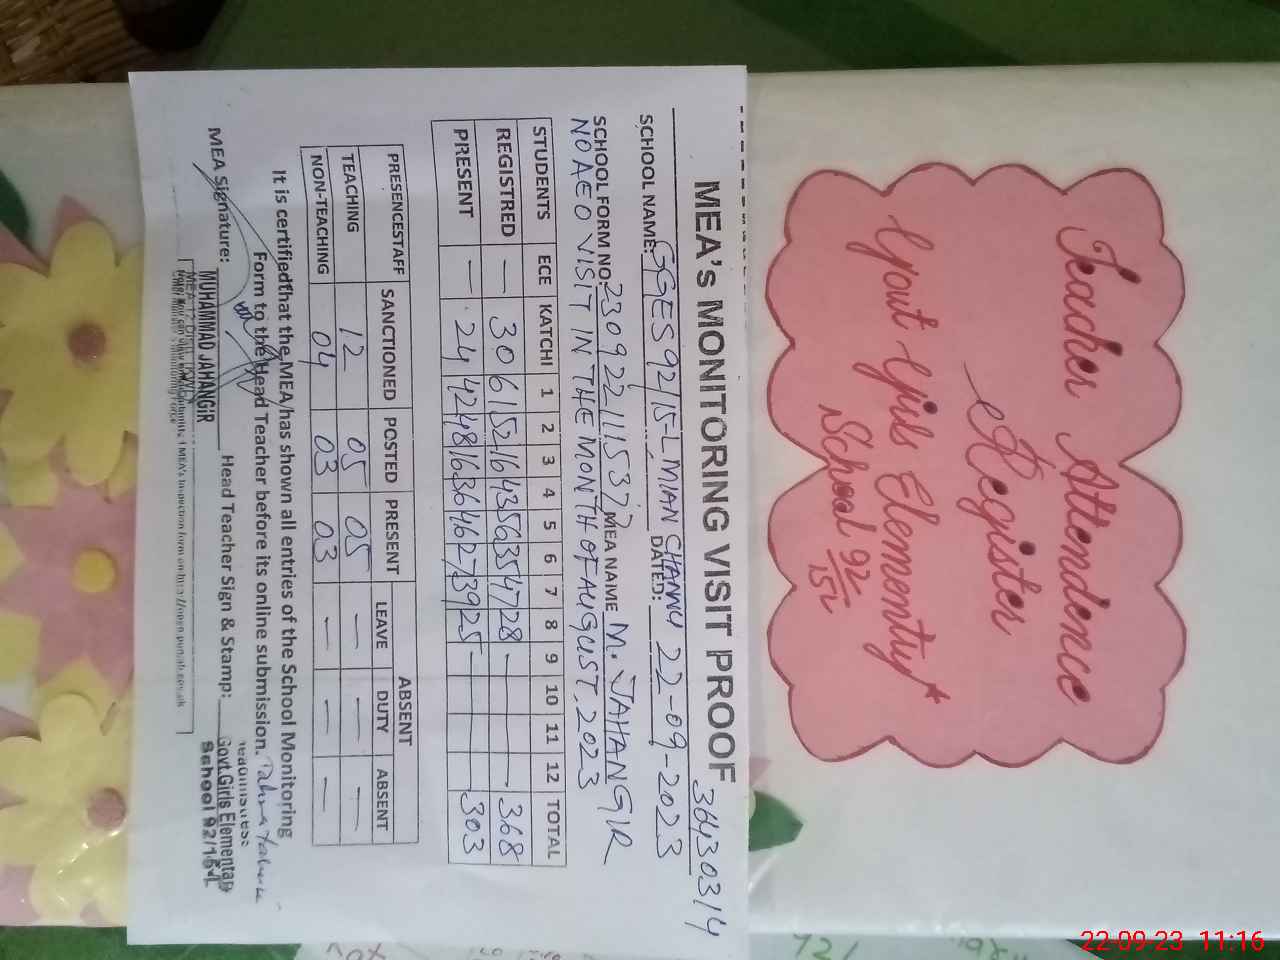 Teacher Attendence
Register
Govt Girls Elementry
School 92/15L
MEA's MONITORING VISIT PROOF 36430314
SCHOOL NAME: GGES 92/15-L MIAN CHANNU DATED: 22-09-2023
SCHOOL FORM NO. MEA NAME M. JAHANGIR
NO AEO VISIT IN THE MONTH OF AUGUST.2023
STUDENTS ECE KATCHI 1 2 3 4 5 6 7 8 9 10 11 12 TOTAL
REGISTRED — 30 61 52 16 43 56 35 47 28 — 368
PRESENT — 24 42 48 16 36 46 27 39 25 — 303
PRESENCESTAFF SANCTIONED POSTED PRESENT ABSENT
LEAVE DUTY ABSENT
TEACHING 12 05 05 — — —
NON-TEACHING 04 03 03 — — —
It is certifiedthat the MEA has shown all entries of the School Monitoring
Form to the Head Teacher before its online submission.
MEA Signature: Head Teacher Sign & Stamp:
MUHAMMAD JAHANGIR
Govt.Girls Elementary
School 92/15-L
22-09-23 11:16